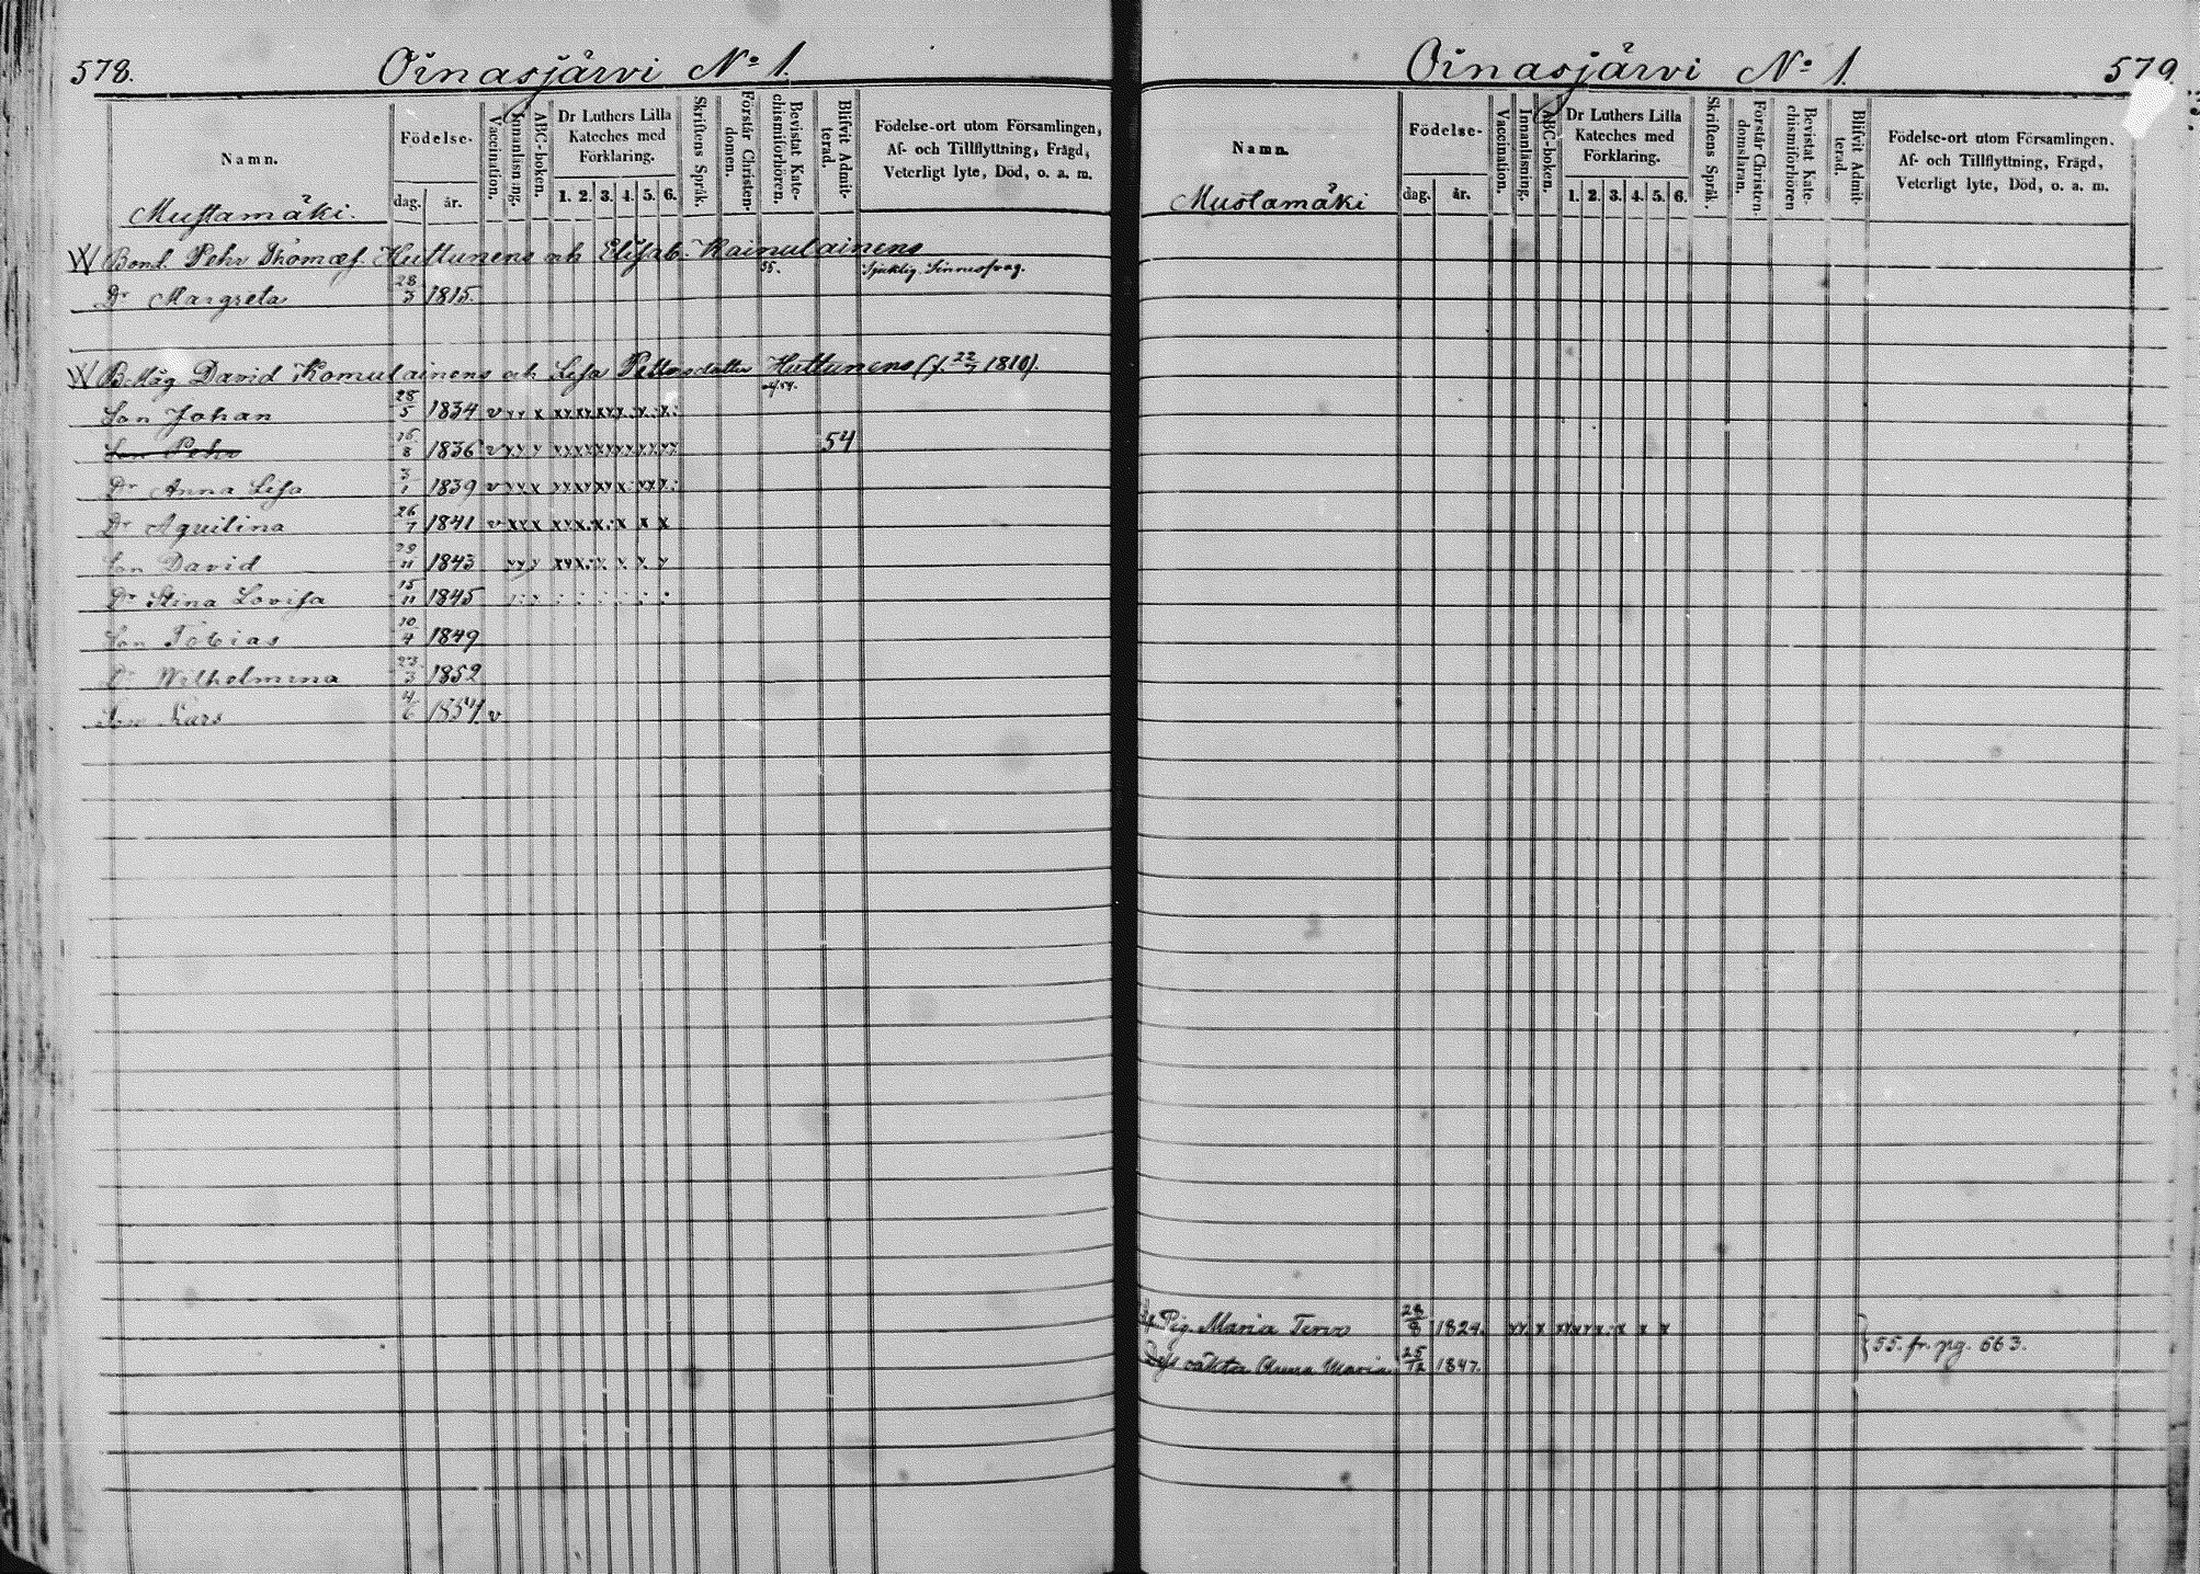 578.
Oinasjärvi No 1.
Namn.
Födelse-
dag.
år.
Vaccination.
Innanläsning.
ABC-boken.
Dr Luthers Lilla
Kateches med
Förklaring.
1. 2. 3. 4. 5. 6.
Skriftens Språk.
Förstår Christen-
domen.
Bevistat Kate-
chismiförhören.
Blifvit Admit-
terad.
Födelse-ort utom Församlingen,
Af- och Tillflyttning, Frägd,
Veterligt lyte, Död, o. a. m.
Mustamäki.
Bond. Pehr Thomæs. Huttunens och Elisab. Kainulainens
Dr Margreta 28/3 1815. 55. Sjuklig. Sinnessvag.
B. Måg David Komulainens och Lisa Pettersdotter Huttunens (f. 22/7 1810).
Son Johan 28/5 1834 v
Son Pehr 15/8 1836 v 54
Dr Anna Lisa 3/1 1839 v
Dr Aquilina 26/7 1841 v
Son David 29/11 1843
Dr Stina Lovisa 15/11 1845
Son Tobias 10/4 1849
Dr Wilhelmina 23/3 1852
Son Lars 4/6 1854. v
Oinasjärvi No 1.
579.
Namn.
Födelse-
dag.
år.
Vaccination.
Innanläsning.
ABC-boken.
Dr Luthers Lilla
Kateches med
Förklaring.
1. 2. 3. 4. 5. 6.
Skriftens Språk.
Förstår Christen-
domslaran.
Bevistat Kate-
chismiförhören
Blifvit Admit-
terad.
Födelse-ort utom Församlingen.
Af- och Tillflyttning, Frägd,
Veterligt lyte, Död, o. a. m.
Mustamäki
Pig. Maria Tervo 28/8 1824.
55. fr. pg. 663.
Dess oäkta Anna Maria 25/12 1847.